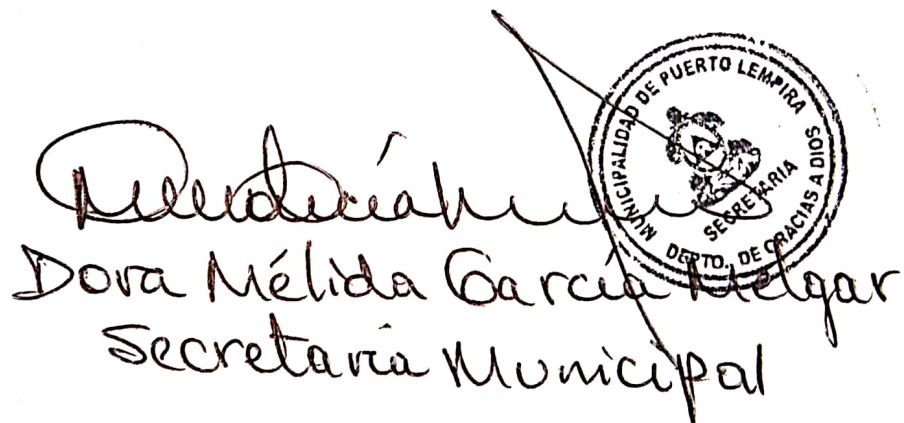 MUNICIPALIDAD DE PUERTO LEMPIRA
SECRETARIA
DEPTO. DE GRACIAS A DIOS
Dora Mélida García Melgar
Secretaria Municipal